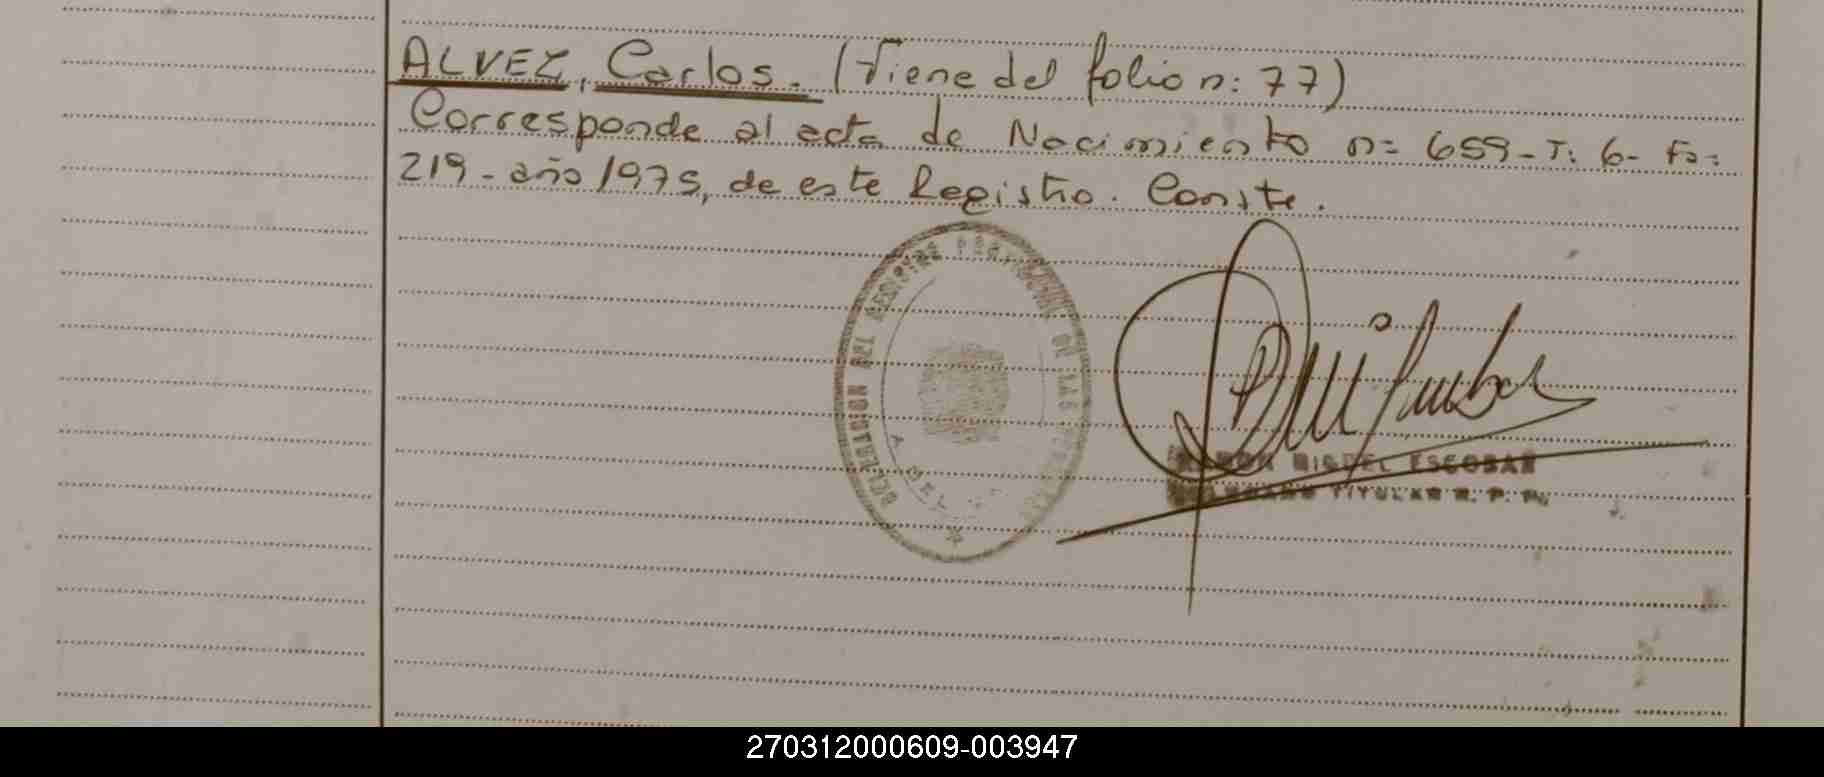 ALVEZ, Carlos. (Viene del folio n: 77)
Corresponde al acta de Nacimiento n= 659-T: 6- Fo:
219-año 1975, de este Registro. Conste.
DELEGACION DEL REGISTRO PROVINCIAL DE LAS PERSONAS
RAMON MIGUEL ESCOBAR
TITULAR R. P. P.
270312000609-003947